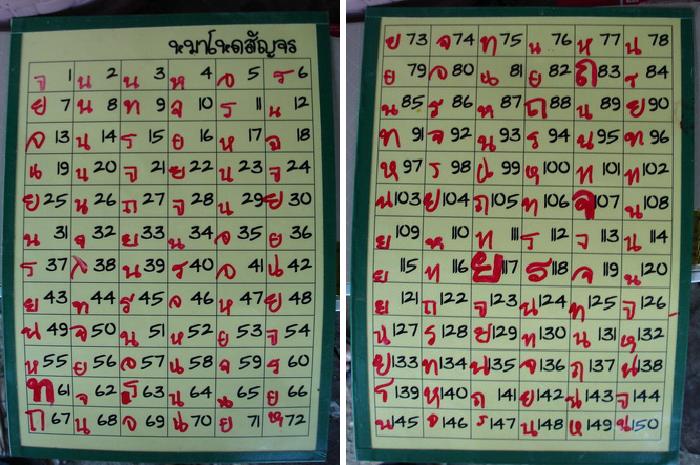 หมาโหดสัญจร
จ 1 น 2 น 3 ห 4 จ 5 ร 6
ย 7 น 8 ท 9 จ 10 ร 11 น 12
จ 13 น 14 ร 15 ย 16 ห 17 จ 18
น 19 น 20 จ 21 ย 22 น 23 จ 24
ย 25 น 26 ถ 27 จ 28 น 29 ย 30
น 31 จ 32 ย 33 น 34 จ 35 ย 36
ร 37 จ 38 น 39 ร 40 จ 41 น 42
ย 43 ท 44 ร 45 จ 46 ห 47 ย 48
น 49 จ 50 น 51 ห 52 ย 53 จ 54
ห 55 ย 56 จ 57 น 58 จ 59 ร 60
ท 61 จ 62 ร 63 น 64 น 65 ย 66
ถ 67 น 68 จ 69 น 70 ย 71 ห 72
ย 73 จ 74 ท 75 น 76 ห 77 น 78
ย 79 จ 80 ย 81 ย 82 ถ 83 ร 84
น 85 ร 86 ห 87 ถ 88 น 89 ย 90
ท 91 จ 92 น 93 ร 94 น 95 ท 96
ห 97 ร 98 99 ห 100 ท 101 ท 102
น 103 ย 104 ถ 105 ท 106 จ 107 น 108
ย 109 ห 110 ท 111 ร 112 จ 113 น 114
ย 115 ท 116 ย 117 ร 118 จ 119 น 120
ย 121 ถ 122 จ 123 น 124 ท 125 จ 126
น 127 ร 128 ย 129 ท 130 น 131 ห 132
ย 133 ท 134 น 135 จ 136 ถ 137 น 138
ร 139 ห 140 ถ 141 ย 142 น 143 จ 144
น 145 จ 146 ร 147 น 148 ห 149 น 150